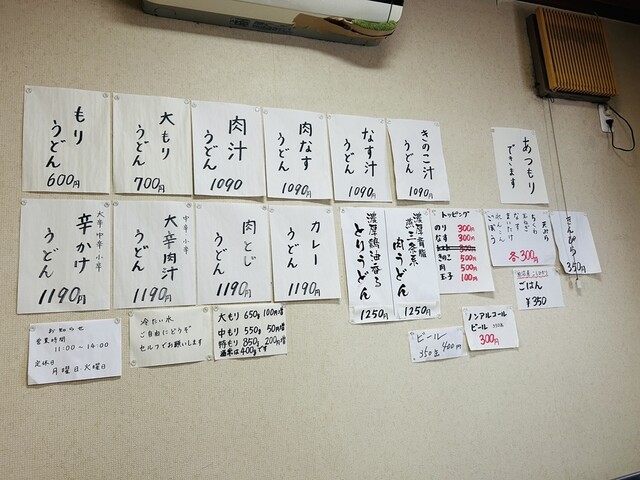 もり
うどん
600円
大もり
うどん
700円
肉汁
うどん
1090
肉なす
うどん
1090円
なす汁
うどん
1090円
きのこ汁
うどん
1090円
あつもり
できます
大辛 中辛 小辛
辛かけ
うどん
1190円
中辛 小辛
大辛肉汁
うどん
1190円
肉とじ
うどん
1190円
カレー
うどん
1190円
濃厚鶏油香る
とりうどん
1250円
濃厚背脂
燕三条系
肉うどん
1250円
トッピング
のり 300円
なす 300円
300円
きのこ 500円
肉 500円
玉子 100円
天ぷら
ちくわ
玉ねぎ
なす
まいたけ
れんこん
ごぼう
各300円
きんぴら
350円
ごはん
¥350
お知らせ
営業時間
11:00〜14:00
定休日
月曜日・火曜日
冷たい水
ご自由にどうぞ
セルフでお願いします
大もり 650g 100円増
中もり 550g 50円増
特もり 850g 200円増
通常は400gです
ビール
350缶 400円
ノンアルコール
ビール 350缶
300円